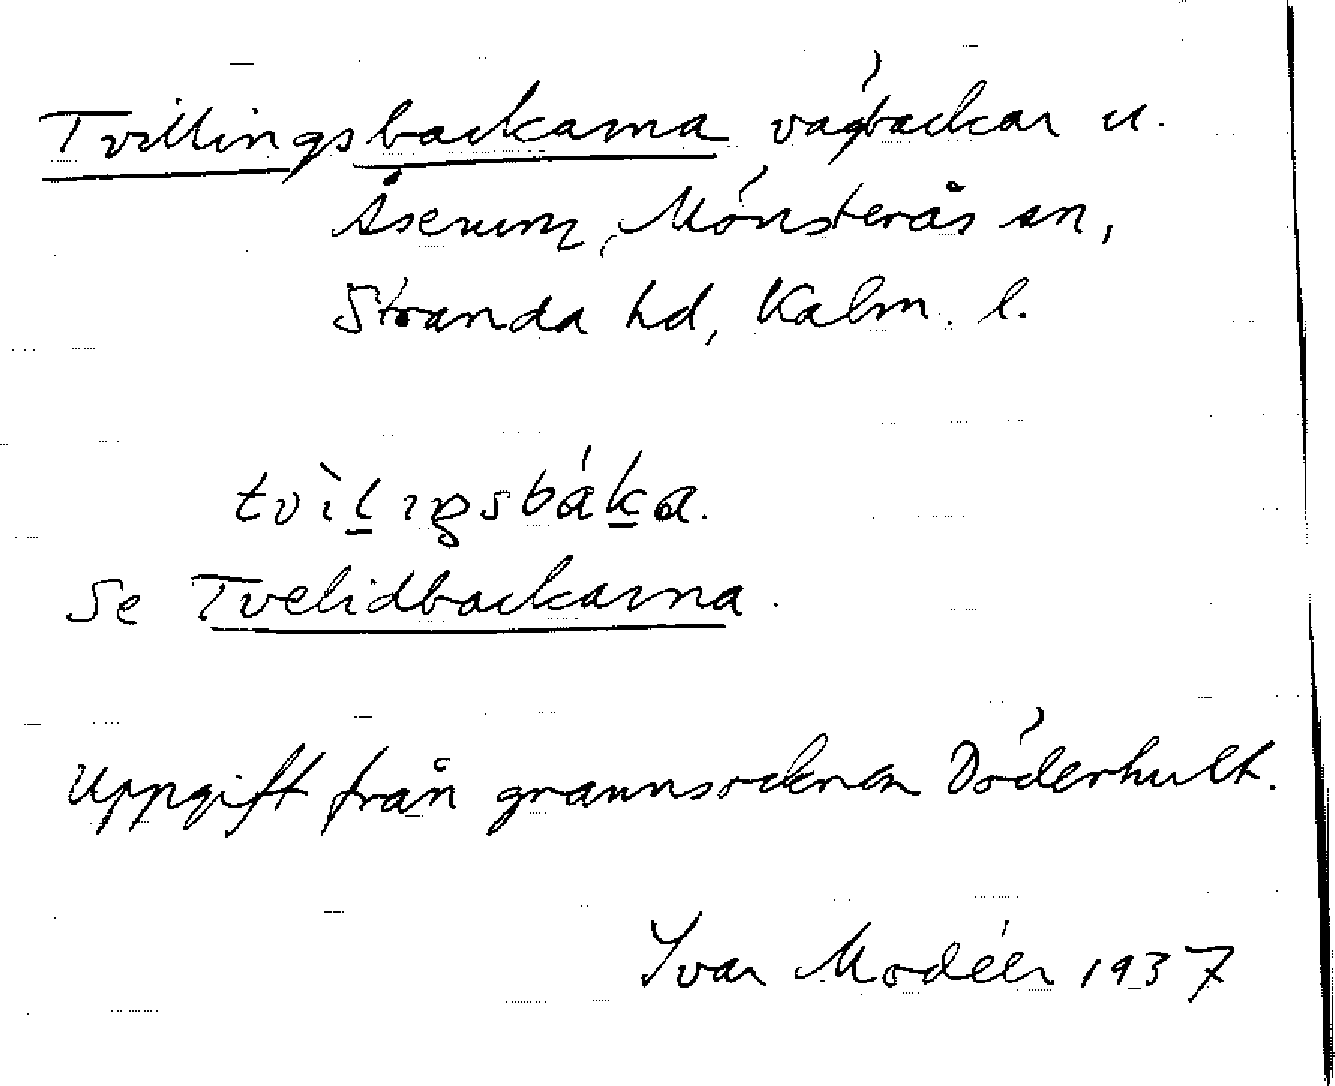 Tvillingsbackarna vägbackar u.
Åserum, Mönsterås sn,
Stranda hd, Kalm. l.
tvìl̠ıŋsbák̠a.
Se Tvelidbackarna.
Uppgift från grannsocknen Döderhult.
Ivar Modéer 1937